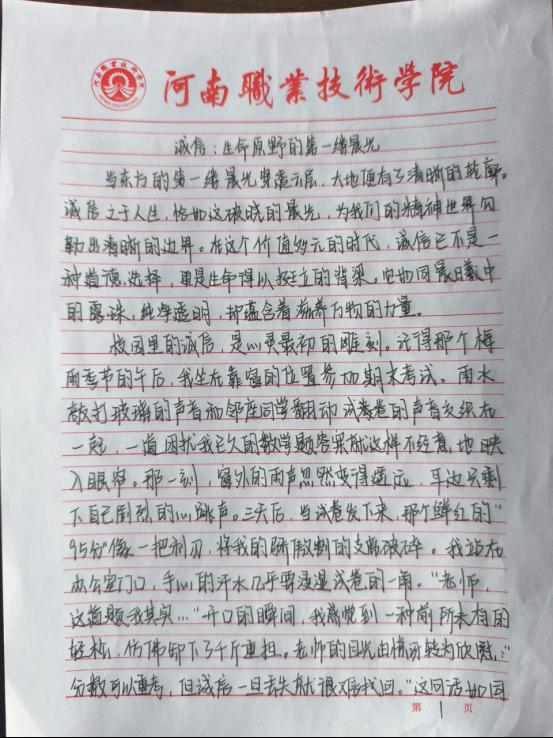 河南職業技術學院
诚信：生命原野的第一缕晨光
当东方的第一缕晨光穿透云层，大地便有了清晰的轮廓。
诚信之于人生，恰如这破晓的晨光，为我们的精神世界勾
勒出清晰的边界。在这个价值多元的时代，诚信已不是一
种道德选择，更是生命得以挺立的脊梁。它如同晨曦中
的露珠，纯净透明，却蕴含着滋养万物的力量。
校园里的诚信，是心灵最初的雕刻。记得那个梅
雨季节的午后，我坐在靠窗的位置参加期末考试。雨水
敲打玻璃的声音和邻座同学翻动试卷卷的声音交织在
一起，一道困扰我已久的数学题答案就这样不经意地映
入眼帘。那一刻，窗外的雨声忽然变得遥远，耳边只剩
下自己剧烈的心跳声。三天后，当试卷发下来，那个鲜红的“
95分”像一把利刃，将我的骄傲割的支离破碎。我站在
办公室门口，手心的汗水几乎要浸湿试卷的一角。“老师，
这道题我其实…”开口的瞬间，我感觉到一种前所未有的
轻松，仿佛卸下了千斤重担。老师的目光由惊讶转为欣慰：“
分数可以重考，但诚信一旦丢失就很难找回。”这句话如同
第 1 页